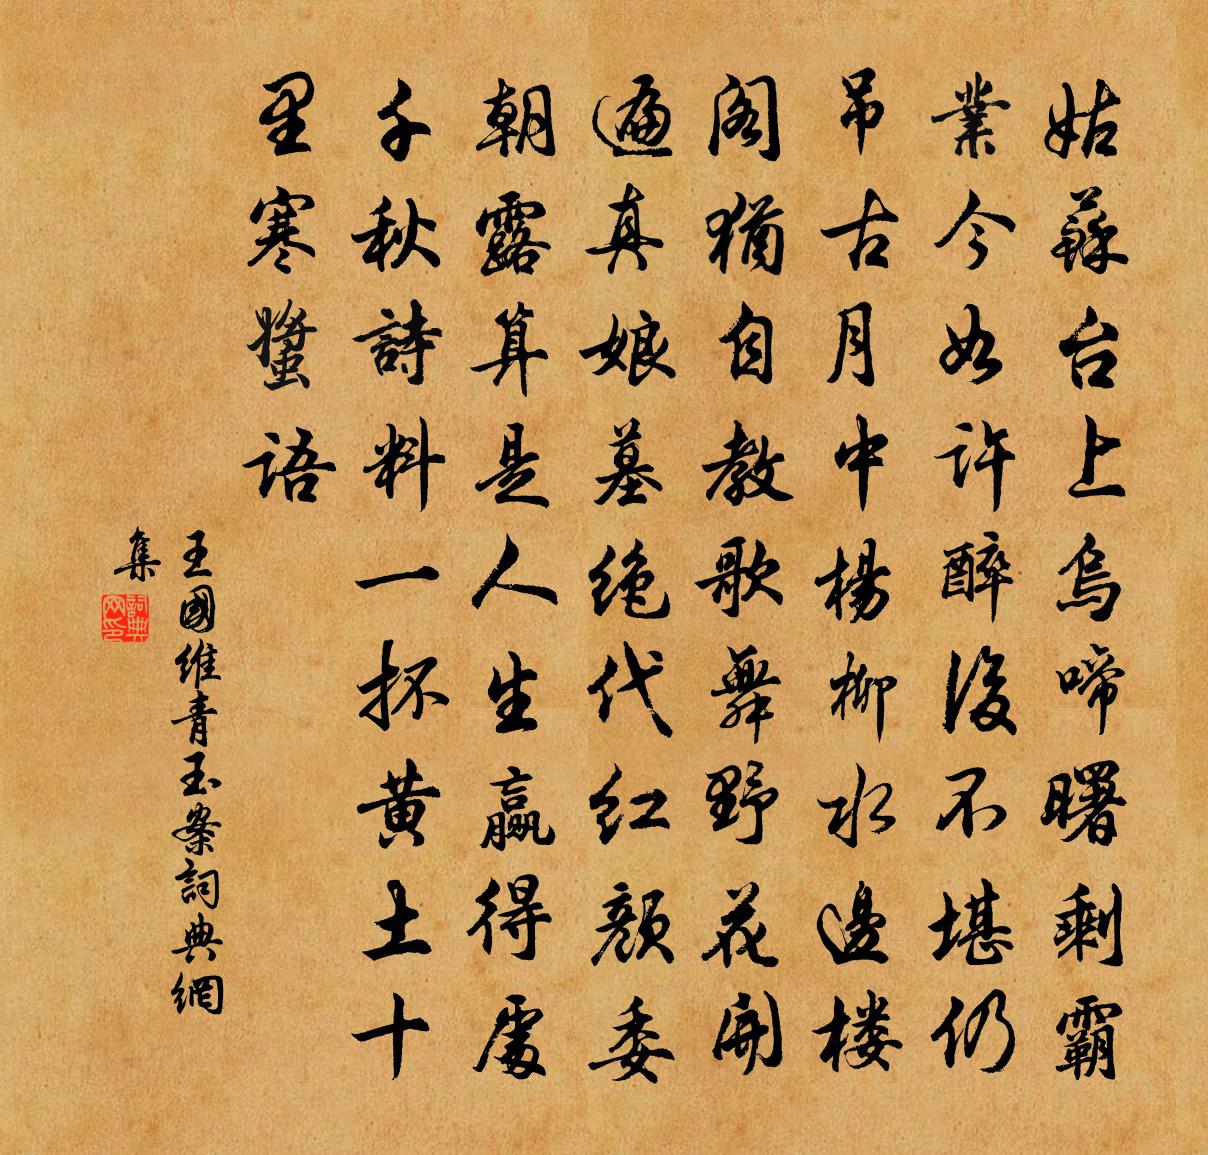 姑蘇台上烏啼曙剩霸
業今如许醉後不堪仍
吊古月中楊柳水邊楼
阁猶自教歌舞野花開
遍真娘墓绝代红颜委
朝露算是人生赢得處
千秋詩料一抔黄土十
里寒螿语
王國维青玉案詞典網
集
詞典
网印